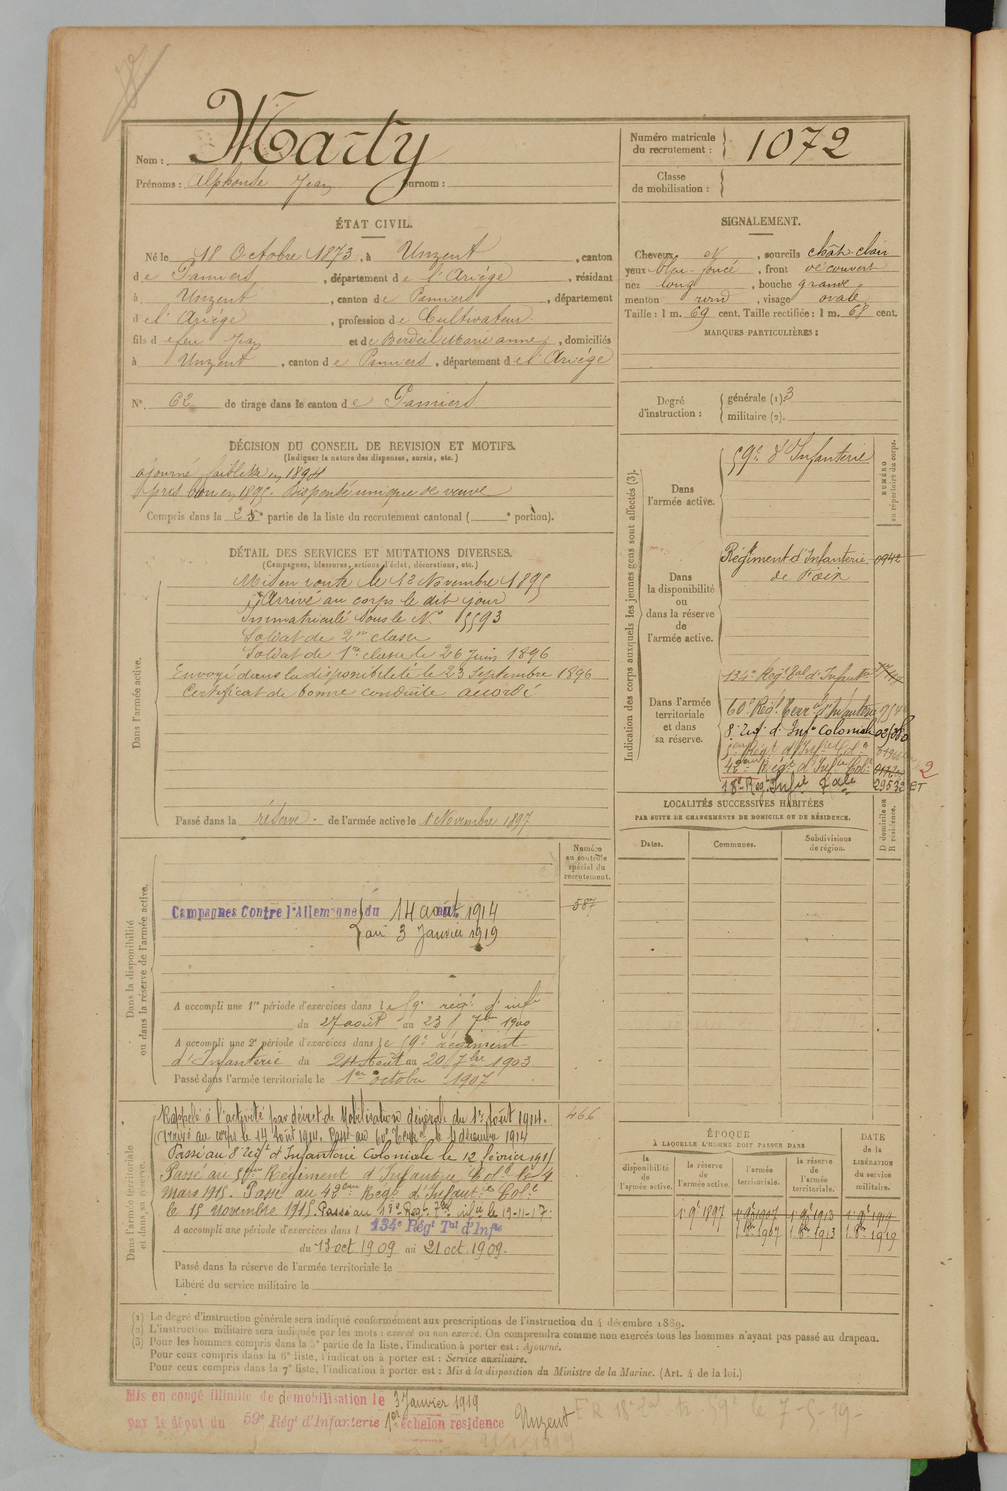 Marty
Nom :
Prénoms : Alphonse Jean Surnom :
Numéro matricule
du recrutement : 1072
Classe
de mobilisation :
ÉTAT CIVIL.
Né le 18 Octobre 1873, à Unzent, canton
de Pamiers, département de l'Ariège, résidant
à Unzent, canton de Pamiers, département
de l'Ariège, profession de Cultivateur
fils de feu Jean et de Berdeil Marie anne, domiciliés
à Unzent, canton de Pamiers, département de l'Ariège
N° 62 de tirage dans le canton de Pamiers
SIGNALEMENT.
Cheveux et, sourcils chât clair
yeux bleu foncé, front découvert
nez long, bouche grande
menton rond, visage ovale
Taille : 1 m. 69 cent. Taille rectifiée : 1 m. 68 cent.
MARQUES PARTICULIÈRES :
Degré
d'instruction :
générale (1). 3
militaire (2).
DÉCISION DU CONSEIL DE REVISION ET MOTIFS.
(Indiquer la nature des dispenses, sursis, etc.)
ajourné faiblesse en 1894
après bon en 1895 Dispensé unique de veuve
Compris dans la 2e partie de la liste du recrutement cantonal ( e portion).
DÉTAIL DES SERVICES ET MUTATIONS DIVERSES.
(Campagnes, blessures, actions d'éclat, décorations, etc.)
Dans l'armée active.
Mis en route le 12 Novembre 1895
Arrivé au corps le dit jour
Immatriculé sous le N° 5593
Soldat de 2me classe
Soldat de 1re classe le 26 Juin 1896
Envoyé dans la disponibilité le 23 Septembre 1896
Certificat de bonne conduite accordé
Passé dans la réserve de l'armée active le 1 Novembre 1897
Indication des corps auxquels les jeunes gens sont affectés (3).
NUMÉRO
au répertoire du corps.
Dans
l'armée active.
59e d'Infanterie
Dans
la disponibilité
ou
dans la réserve
de
l'armée active.
Régiment d'Infanterie
de Foix
0942
Dans l'armée
territoriale
et dans
sa réserve.
134e Régt Tal d'Infant
60e Régt Terral d'Infanterie
8e Régt d'Infie Coloniale
Régt d'Infie Cole
42eme Régt d'Infie Cole
18e Reg. Infie Tale 29532 ET
2
LOCALITÉS SUCCESSIVES HABITÉES
PAR SUITE DE CHANGEMENTS DE DOMICILE OU DE RÉSIDENCE.
Dates.
Communes.
Subdivisions
de région.
D domicile ou
R résidence.
Dans la disponibilité
ou dans la réserve de l'armée active.
Numéro
au contrôle
spécial du
recrutement.
587
Campagnes Contre l'Allemagne du 14 aout 1914
au 3 Janvier 1919
A accompli une 1re période d'exercices dans le 59e régt d'infie
du 27 août au 23 7bre 1900
A accompli une 2e période d'exercices dans le 59e régiment
d'Infanterie du 24 Août au 20 7bre 1903
Passé dans l'armée territoriale le 1er octobre 1907
Dans l'armée territoriale
et dans sa réserve.
466
Rappelé à l'activité par décret de Mobilisation Générale du 1er Août 1914.
Arrivé au corps le 14 Août 1914. Passé au 60e Terral le 4 décembre 1914
Passé au 8e régt d'Infanterie Coloniale le 12 février 1915
Passé au Régiment d'Infanterie Cole le 4
mars 1915. Passé au 42eme Régt d'Infantie Cole
le 15 novembre 1915. Passé au 18e Regt Tal infie le 19-11-17.
A accompli une période d'exercices dans l 134e Régt Tal d'Infie
du 13 oct. 1909 au 21 oct. 1909.
Passé dans la réserve de l'armée territoriale le
Libéré du service militaire le
ÉPOQUE
À LAQUELLE L'HOMME DOIT PASSER DANS
la
disponibilité
de
l'armée active.
la réserve
de
l'armée active.
l'armée
territoriale.
la réserve
de
l'armée
territoriale.
DATE
de la
LIBÉRATION
du service
militaire.
1 9e 1897 1 9e 1907 1 9e 1913 1 9e 1919
1 8bre 1907 1 8bre 1913 1 8bre 1919
(1) Le degré d'instruction générale sera indiqué conformément aux prescriptions de l'instruction du 4 décembre 1889.
(2) L'instruction militaire sera indiquée par les mots : exercé ou non exercé. On comprendra comme non exercés tous les hommes n'ayant pas passé au drapeau.
(3) Pour les hommes compris dans la 5e partie de la liste, l'indication à porter est : Ajourné.
Pour ceux compris dans la 6e liste, l'indication à porter est : Service auxiliaire.
Pour ceux compris dans la 7e liste, l'indication à porter est : Mis à la disposition du Ministre de la Marine. (Art. 4 de la loi.)
Mis en congé illimité de démobilisation le 3 Janvier 1919
par le dépôt du 59e Régt d'Infanterie 1er échelon résidence Unzent